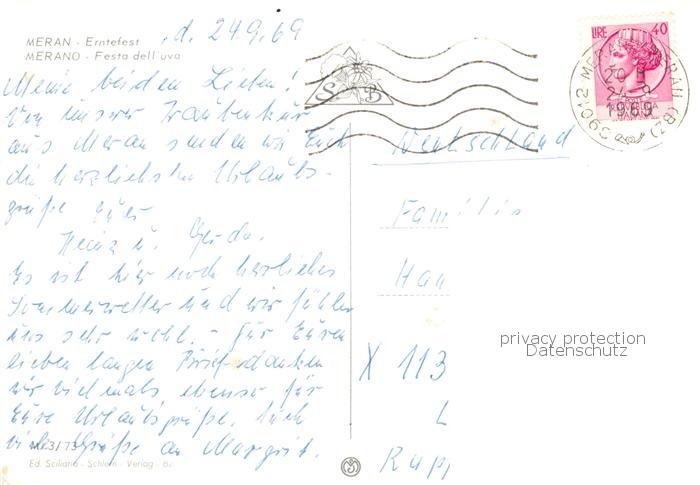 MERAN - Erntefest
MERANO - Festa dell'uva
d. 24.9.69
Meine beiden Lieben!
Von unsrer Traubenkur
aus Meran senden wir Euch
die herzlichsten Urlaubs-
grüße Euer
Heinz u. Gerda.
Es ist hier noch herrliches
Sommerwetter und wir fühlen
uns sehr wohl. - Für Euren
lieben langen Brief danken
wir vielmals, ebenso für
Eure Urlaubsgrüße. Auch
viele Grüße an Margrit.
M. 3/73
Ed. Sciliano - Schlern - Verlag - Bz
LIRE 40
39012 MERANO MERAN (BZ)
24 9
1969
S B
Deutschland
Familie
Han
X 113
L
Rupp
privacy protection
Datenschutz